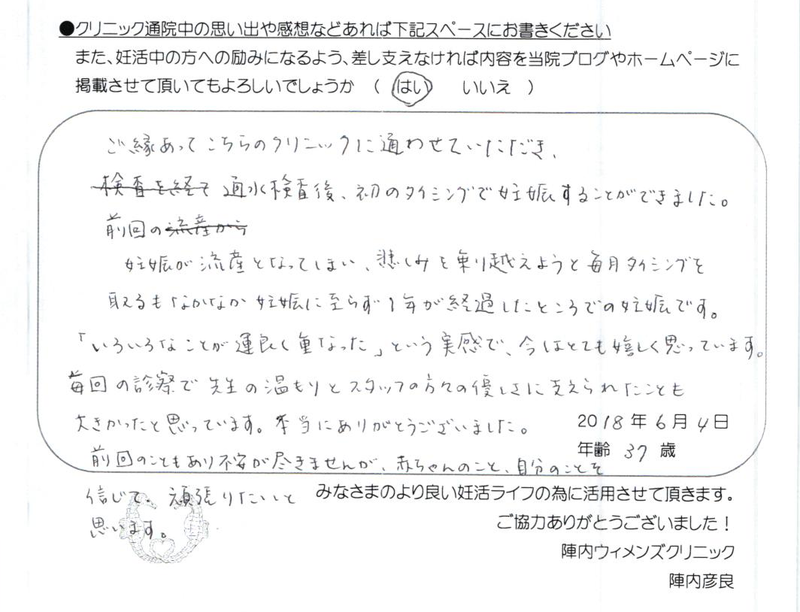 ●クリニック通院中の思い出や感想などあれば下記スペースにお書きください
また、妊活中の方への励みになるよう、差し支えなければ内容を当院ブログやホームページに
掲載させて頂いてもよろしいでしょうか ( はい いいえ )
ご縁あってこちらのクリニックに通わせていただき、
検査を経て 通水検査後、初のタイミングで妊娠することができました。
前回の流産から
妊娠が流産となってしまい、悲しみを乗り越えようと毎月タイミングを
取るもなかなか妊娠に至らず1年が経過したところでの妊娠です。
「いろいろなことが運良く重なった」という実感で、今はとても嬉しく思っています。
毎回の診察で先生の温もりとスタッフの方々の優しさに支えられたことも
大きかったと思っています。本当にありがとうございました。
2018年6月4日
年齢 37 歳
前回のこともあり不安が尽きませんが、赤ちゃんのこと、自分のことを
信じて、頑張りたいと
思います。
みなさまのより良い妊活ライフの為に活用させて頂きます。
ご協力ありがとうございました!
陣内ウィメンズクリニック
陣内彦良